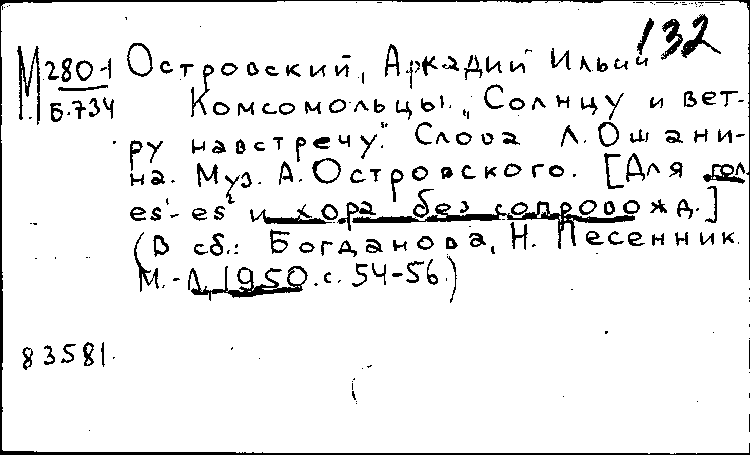 132
М 280-1 Островский, Аркадий Ильич
Б.734 Комсомольцы. „Солнцу и вет-
ру навстречу." Слова Л. Ошани-
на. Муз. А. Островского. [Для гол.
es¹-es² и хора без сопровожд.]
(В сб.: Богданова, Н. Песенник.
М.-Л, 1950. с. 54-56.)
83581.